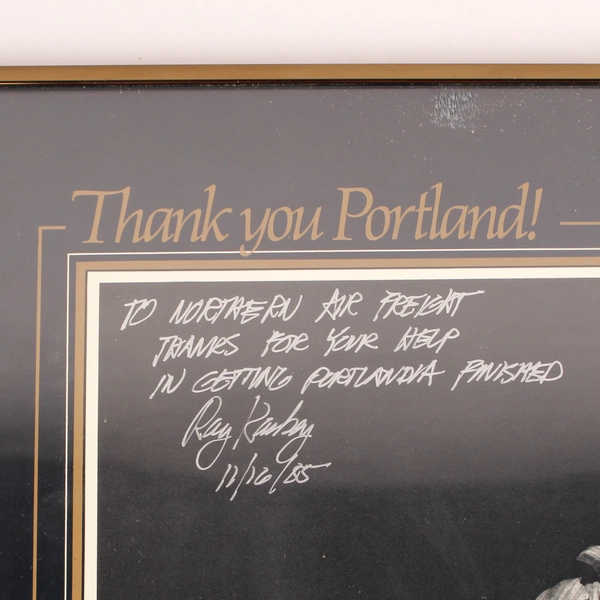 Thank you Portland!
TO NORTHERN AIR FREIGHT
THANKS FOR YOUR HELP
IN GETTING PORTLANDIA FINISHED
Ray Kaskey
11/26/85